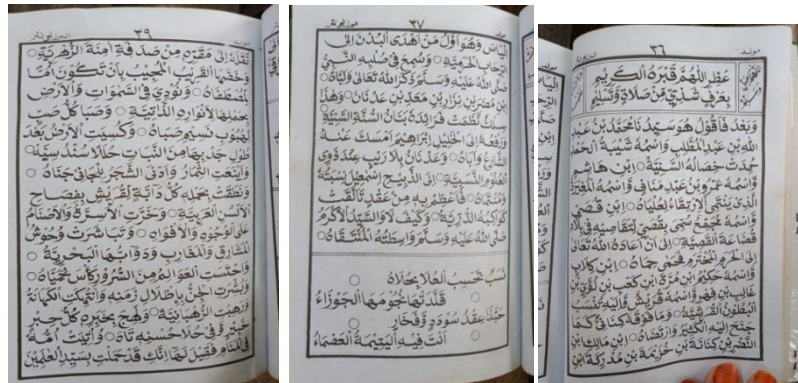 مولد ٣٦ البرزنجي نثر
عطر اللهم قبره الكريم
بعرف شذي من صلاة وتسليم
وبعد فاقول هو سيدنا محمد بن عبد
الله بن عبد المطلب واسمه شيبة الحمد
حمدت خصاله السنية ○ ابن هاشم
واسمه عمرو بن عبد مناف واسمه المغيرة
الذي ينتمى الارتقاء لعلياه ○ ابن قصي
واسمه مجمع سمى بقصي لتقاصيه في بلاد
قضاعة القصية ○ الى ان اعاده الله تعالى
الى الحرم المحترم فحمى حماه ○ ابن كلاب
واسمه حكيم ابن مرة ابن كعب بن لؤي بن
غالب بن فهر واسمه قريش واليه تنسب
البطون القرشية ○ وما فوقه كناني كما
جنح اليه الكثير وارتضاه ○ ابن مالك ابن
النضر بن كنانة بن خزيمة بن مدركة ابن
مولد ٣٧ البرزنجي نثر
الياس وهو اول من اهدى البدن الى
الرحاب الحرمية ○ وسمع في صلبه النبي
صلى الله عليه وسلم ذكر الله تعالى ولباه ○
ابن مضر بن نزار بن معد بن عدنان ○ وهذا
سلك نظمت فرائده بنان السنة السنية
ورفعه الى الخليل ابراهيم امسك عنه
الشارع واباه ○ وعدنان بلا ريب عند ذوى
العلوم النسبية ○ الى الذبيح اسمعيل نسبته
ومنتماه ○ فاعظم به من عقد تالقت
كواكبه الدرية ○ وكيف لا والسيد الاكرم
صلى الله عليه وسلم واسطته المنتقاه ○
نسب تحسب العلا بحلاه ○
○ قلدتها نجومها الجوزاء
حبذا عقد سودد وفخار ○
○ انت فيه اليتيمة العصماء
مولد ٣٩ البرزنجي نثر
نقله الى مقره من صدفة امنة الزهرية ○
وخصها القريب المجيب بان تكون اما
لمصطفاه ○ ونودي في السموات والارض
بحملها لانواره الذاتية ○ وصبا كل صب
لهبوب نسيم صباه ○ وكسيت الارض بعد
طول جدبها من النبات حللا سندسية ○
واينعت الثمار وادنى الشجر للجاني جناه ○
ونطقت بحمله كل دابة لقريش بفصاح
الالسن العربية ○ وخرت الاسرة والاصنام
على الوجوه والافواه ○ وتباشرت وحوش
المشارق والمغارب ودوابها البحرية ○
واحتست العوالم من السرور كاس حمياه ○
وبشرت الجن باظلال زمنه وانتهكت الكهانة
ورهبت الرهبانية ○ ولهج بخبره كل حبر
خبير وفي حلا حسنه تاه ○ واتيت امه
في المنام فقيل لها انك قد حملت بسيد العلمين